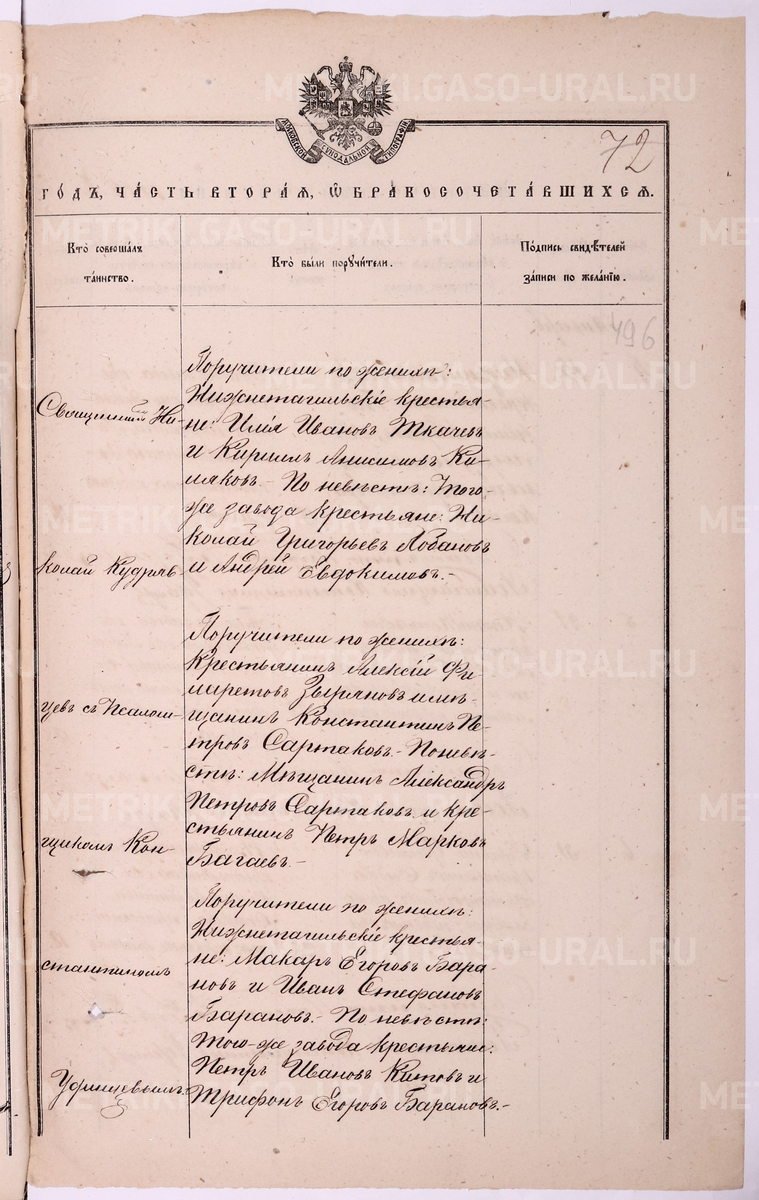 МОСКОВСКОЙ СѴНОДАЛЬНОЙ ТИПОГРАФІИ
72
ГОДЪ, ЧАСТЬ ВТОРАЯ, Ѡ БРАКОСОЧЕТАВШИХСЯ.
Кто совершалъ таинство.
Кто были поручители.
Подпись свидѣтелей записи по желанію.
496
Священникъ Ни-
колай Кудряв-
цевъ съ Псалом-
щикомъ Кон-
стантиномъ
Удинцевымъ.
Поручители по женихѣ:
Нижнетагильскіе крестья-
не: Илія Ивановъ Ткачевъ
и Кириллъ Анисимовъ Ки-
ляковъ. - По невѣстѣ: Того-
же завода крестьяне: Ни-
колай Григорьевъ Лобановъ
и Андрей Евдокимовъ. -
Поручители по женихѣ:
Крестьянинъ Алексій Фи-
ларетовъ Зыряновъ и мѣ-
щанинъ Константинъ Пе-
тровъ Сартаковъ. - По невѣ-
стѣ: Мѣщанинъ Александръ
Петровъ Сартаковъ и кре-
стьянинъ Петръ Марковъ
Багаевъ. -
Поручители по женихѣ:
Нижнетагильскіе крестья-
не: Макаръ Егоровъ Бара-
новъ и Иванъ Стефановъ
Барановъ. - По невѣстѣ:
Того-же завода крестьяне:
Петръ Ивановъ Китовъ и
Трифонъ Егоровъ Барановъ. -
METRIKI.GASO-URAL.RU